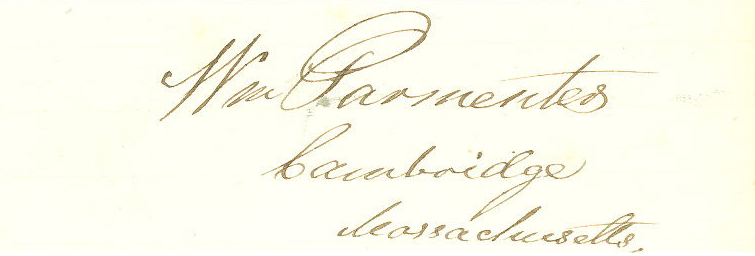 Wm Parmenter
Cambridge
Massachusetts.